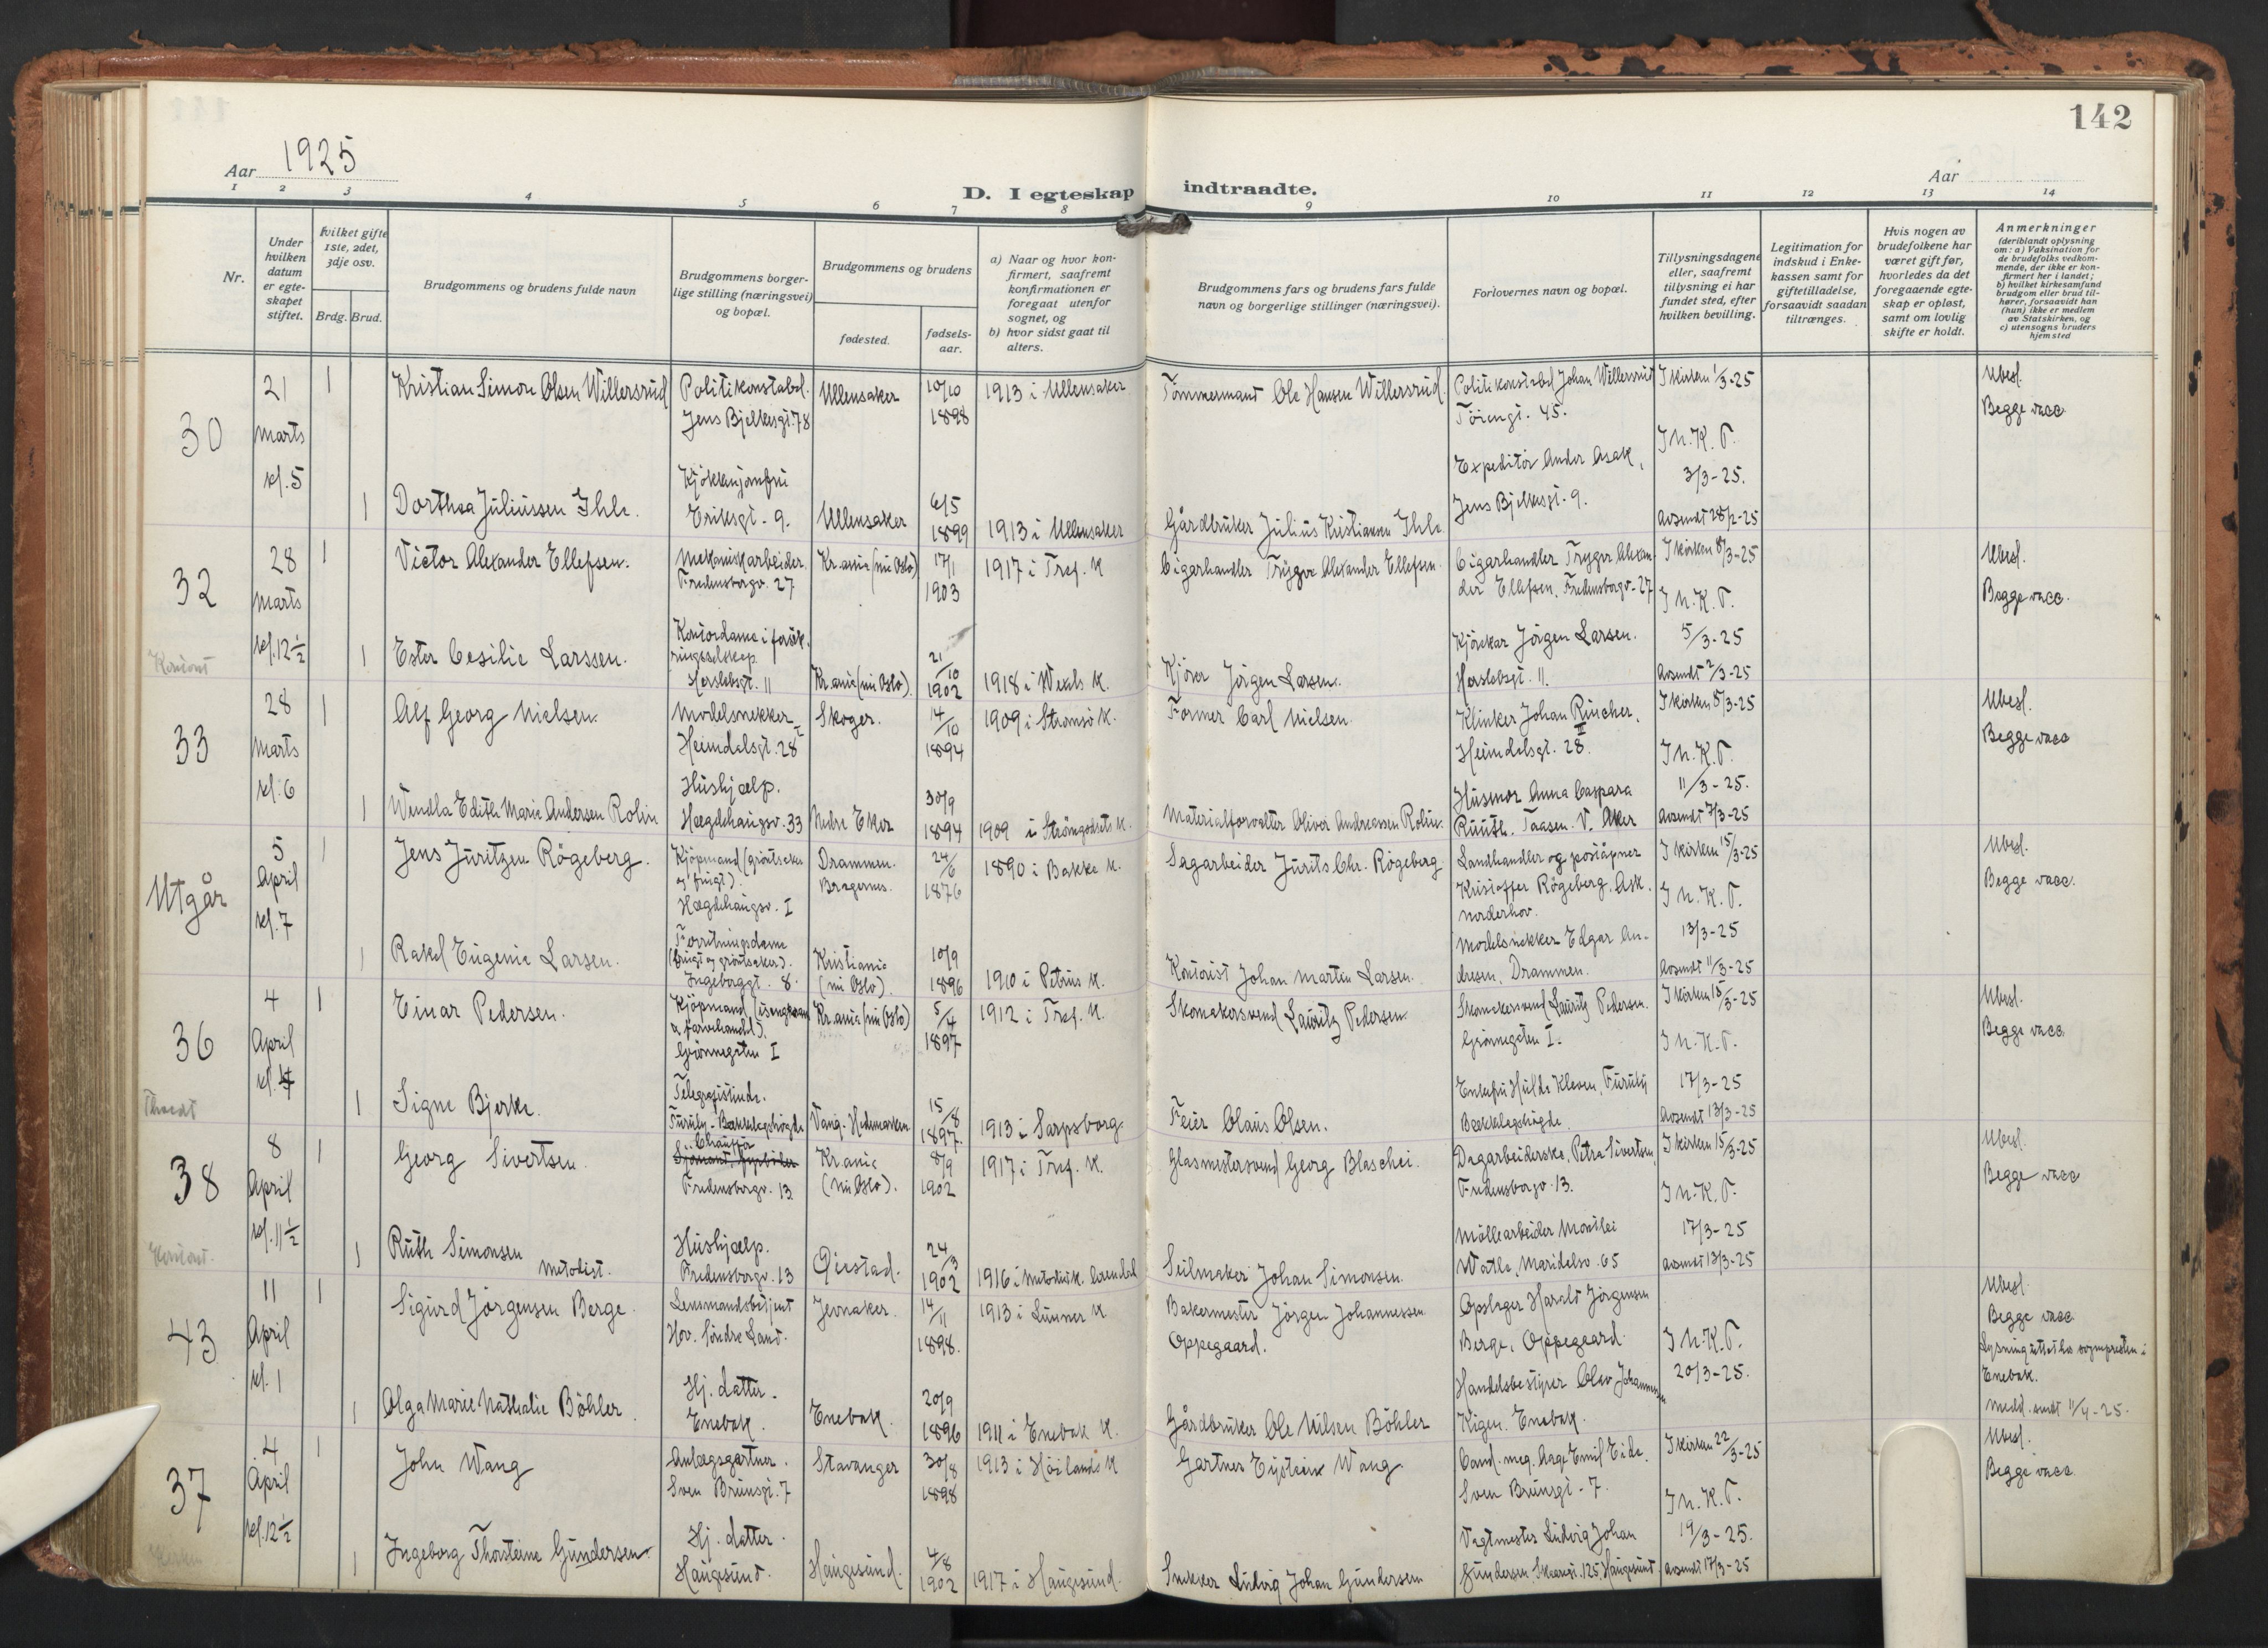 142
Aar 1925
Aar
D. I egteskap indtraadte.
1 2 3 4 5 6 7 8 9 10 11 12 13 14
Nr.
Under hvilken datum er egteskapet stiftet.
Hvilket gifte 1ste, 2det, 3dje osv.
Brdg. Brud.
Brudgommens og brudens fulde navn
Brudgommens borgerlige stilling (næringsvei) og bopæl.
Brudgommens og brudens
fødested.
fødselsaar.
a) Naar og hvor konfirmert, saafremt konfirmationen er foregaat utenfor sognet, og
b) hvor sidst gaat til alters.
Brudgommens fars og brudens fars fulde navn og borgerlige stillinger (næringsvei).
Forlovernes navn og bopæl.
Tillysningsdagene eller, saafremt tillysning ei har fundet sted, efter hvilken bevilling.
Legitimation for indskud i Enkekassen samt for giftetilladelse, forsaavidt saadan tiltrænges.
Hvis nogen av brudefolkene har været gift før, hvorledes da det foregaaende egteskap er opløst, samt om lovlig skifte er holdt.
Anmerkninger
(deriblandt oplysning om: a) Vaksination for de brudefolks vedkommende, der ikke er konfirmert her i landet;
b) hvilket kirkesamfund brudgom eller brud tilhører, forsaavidt han (hun) ikke er medlem av Statskirken, og
c) utensogns bruders hjemsted
30
21 Marts kl. 5
1 Kristian Simon Olsen Willersrud
Politikonstabel. Jens Bjelkesgt. 78
Ullensaker 10/10 1898
1913 i Ullensaker
Tømmermand Ole Hansen Willersrud.
Politikonstabel Johan Willersrud Töiengt. 45.
I kirken 1/3-25
I N.K.T. 3/3-25.
Avsendt 28/2-25
Ubesl.
Begge vacc.
1 Dorthea Juliussen Ihle.
Kjökkenjomfru Eriksgt. 9.
Ullensaker 6/5 1899
1913 i Ullensaker
Gårdbruker Julius Kristiansen Ihle
Expeditör Ander Asak, Jens Bjelkesgt. 9.
32
28 Marts kl. 12 1/2
1 Victor Alexander Ellefsen.
Mekaniskarbeider. Fredensborgv. 27
Kr.ania (nu Oslo) 17/1 1903
1917 i Tref. K
Cigarhandler Trygve Alexander Ellefsen.
Cigarhandler Trygve Alexander Ellefsen, Fredensborgv. 27
I kirken 8/3-25
I N.K.T. 5/3-25
Avsendt 2/3-25
Ubesl.
Begge vacc.
Kontort
1 Ester Cesilie Larssen.
Kontordame i forsikringsselskap. Herslebsgt. 11
Kr.ania (nu Oslo). 21/10 1902
1918 i Wexels K.
Kjörer Jörgen Larsen.
Kjörekar Jörgen Larsen. Herslebsgt. 11.
33
28 Marts kl. 6
1 Alf Georg Nielsen.
Modelsnekker Heimdalsgt. 28 I
Skoger. 14/10 1894
1909 i Strömsö K.
Former Carl Nielsen.
Klinker Johan Rincher, Heimdalsgt. 28 II.
I kirken 8/3-25
I N.K.T. 11/3-25.
Avsendt 7/3-25
Ubesl.
Begge vacc
1 Wendla Edith Marie Andersen Rolin
Hushjælp. Hægdehaugsv. 33
Nedre Eker 30/9 1894
1909 i Strömgodsets K.
Materialforvalter Oliver Andreassen Rolin.
Husmor Anna Caspara Ruuth. Taasen. V. Aker
Utgår
5 April kl. 7
1 Jens Juritzen Rögeberg.
Kjöpmand (gröntsaker og frugt). Hægdehaugsv. I
Drammen. Bragernes. 24/6 1876
1890 i Bakke K.
Sagarbeider Jurits Chr. Rögeberg
Landhandler og poståpner Kristoffer Rögeberg, Ask. Norderhov.
I kirken 15/3-25
I N.K.T. 13/3-25
Avsendt 11/3-25
Ubesl.
Begge vacc.
1 Rakel Eugenie Larsen.
Forretningsdame (frugt og gröntsaker). Ingeborggt. 8.
Kristiania (nu Oslo). 10/9 1896
1910 i Petrus K.
Kontorist Johan Martin Larsen.
Modelsnekker Edgar Andresen, Drammen.
36
4 April kl. 4
1 Einar Pedersen.
Kjöpmand (isengkram og farvehandel). Grönnegaten I
Kr.ania (nu Oslo) 5/4 1897
1912 i Tref. K.
Skomakersvend Lauritz Pedersen.
Skomakersvend Lauritz Pedersen. Grönnegaten I.
I kirken 15/3-25
I N.K.T. 17/3-25
Avsendt 13/3-25
Ubesl.
Begge vacc.
1 Signe Bjerke.
Telegrafistinde. Furuly - Bækkelagshögda
Vang. Hedemarken 15/8 1897.
1913 i Sarpsborg
Feier Olaus Olsen.
Enkefru Hulda Kleven, Furuly Bækkelagshögda.
38
8 April kl. 11 1/2
1 Georg Sivertsen.
Chauffør Fredensborgv. 13
Kr.ania (nu Oslo). 8/9 1902
1917 i Tref. K.
Glasmestersvend Georg Blaschei.
Dagarbeiderske, Petra Sivertsen, Fredensborgv. 13.
I kirken 15/3-25
I N.K.T. 17/3-25
Avsendt 13/3-25
Ubesl.
Begge vacc
Kontort.
1 Ruth Simonsen Metodist.
Hushjælp. Fredensborgv. 13
Öiestad. 24/3 1902
1916 i Metodistk. Arendal
Seilmaker Johan Simonsen.
Möllearbeider Montlei Watle, Maridalsv. 65
43
11 April kl. 1
1 Sigurd Jörgensen Berge.
Lensmandsbetjent Hov. Söndre Land.
Jevnaker. 14/11 1898.
1913 i Lunner K
Bakermester Jörgen Johannessen Oppegaard.
Opslager Harald Jörgensen Berge, Oppegaard.
I N.K.T. 20/3-25.
Ubesl.
Begge vacc.
Lysningsattest fra sognepresten i Enebak.
Medd. sendt 11/4-25.
1 Olga Marie Nathalie Böhler.
Hj. datter. Enebak.
Enebak. 20/9 1896
1911 i Enebak K.
Gårdbruker Ole Nilsen Böhler
Handelsbestyrer Olav Johannessen Kigen. Enebak.
37
4 April kl. 12 1/2
1 John Wang
Anlægsgartner. Sven Brunsgt. 7
Stavanger 30/8 1898
1913 i Höilands K
Gartner Eystein Wang.
Cand. mag. Aage Emil Eide. Sven Brunsgt - 7.
I kirken 22/3-25
I N.K.T. 19/3-25.
Avsendt 17/3-25
Ubesl.
Begge vacc.
1 Ingeborg Thorsteine Gundersen.
Hj. datter. Haugesund.
Haugesund. 4/8 1902
1917 i Haugesund.
Snekker Ludvig Johan Gundersen
Vagtmester Ludvig Johan Gundersen, Skaaregt. 125, Haugesund.